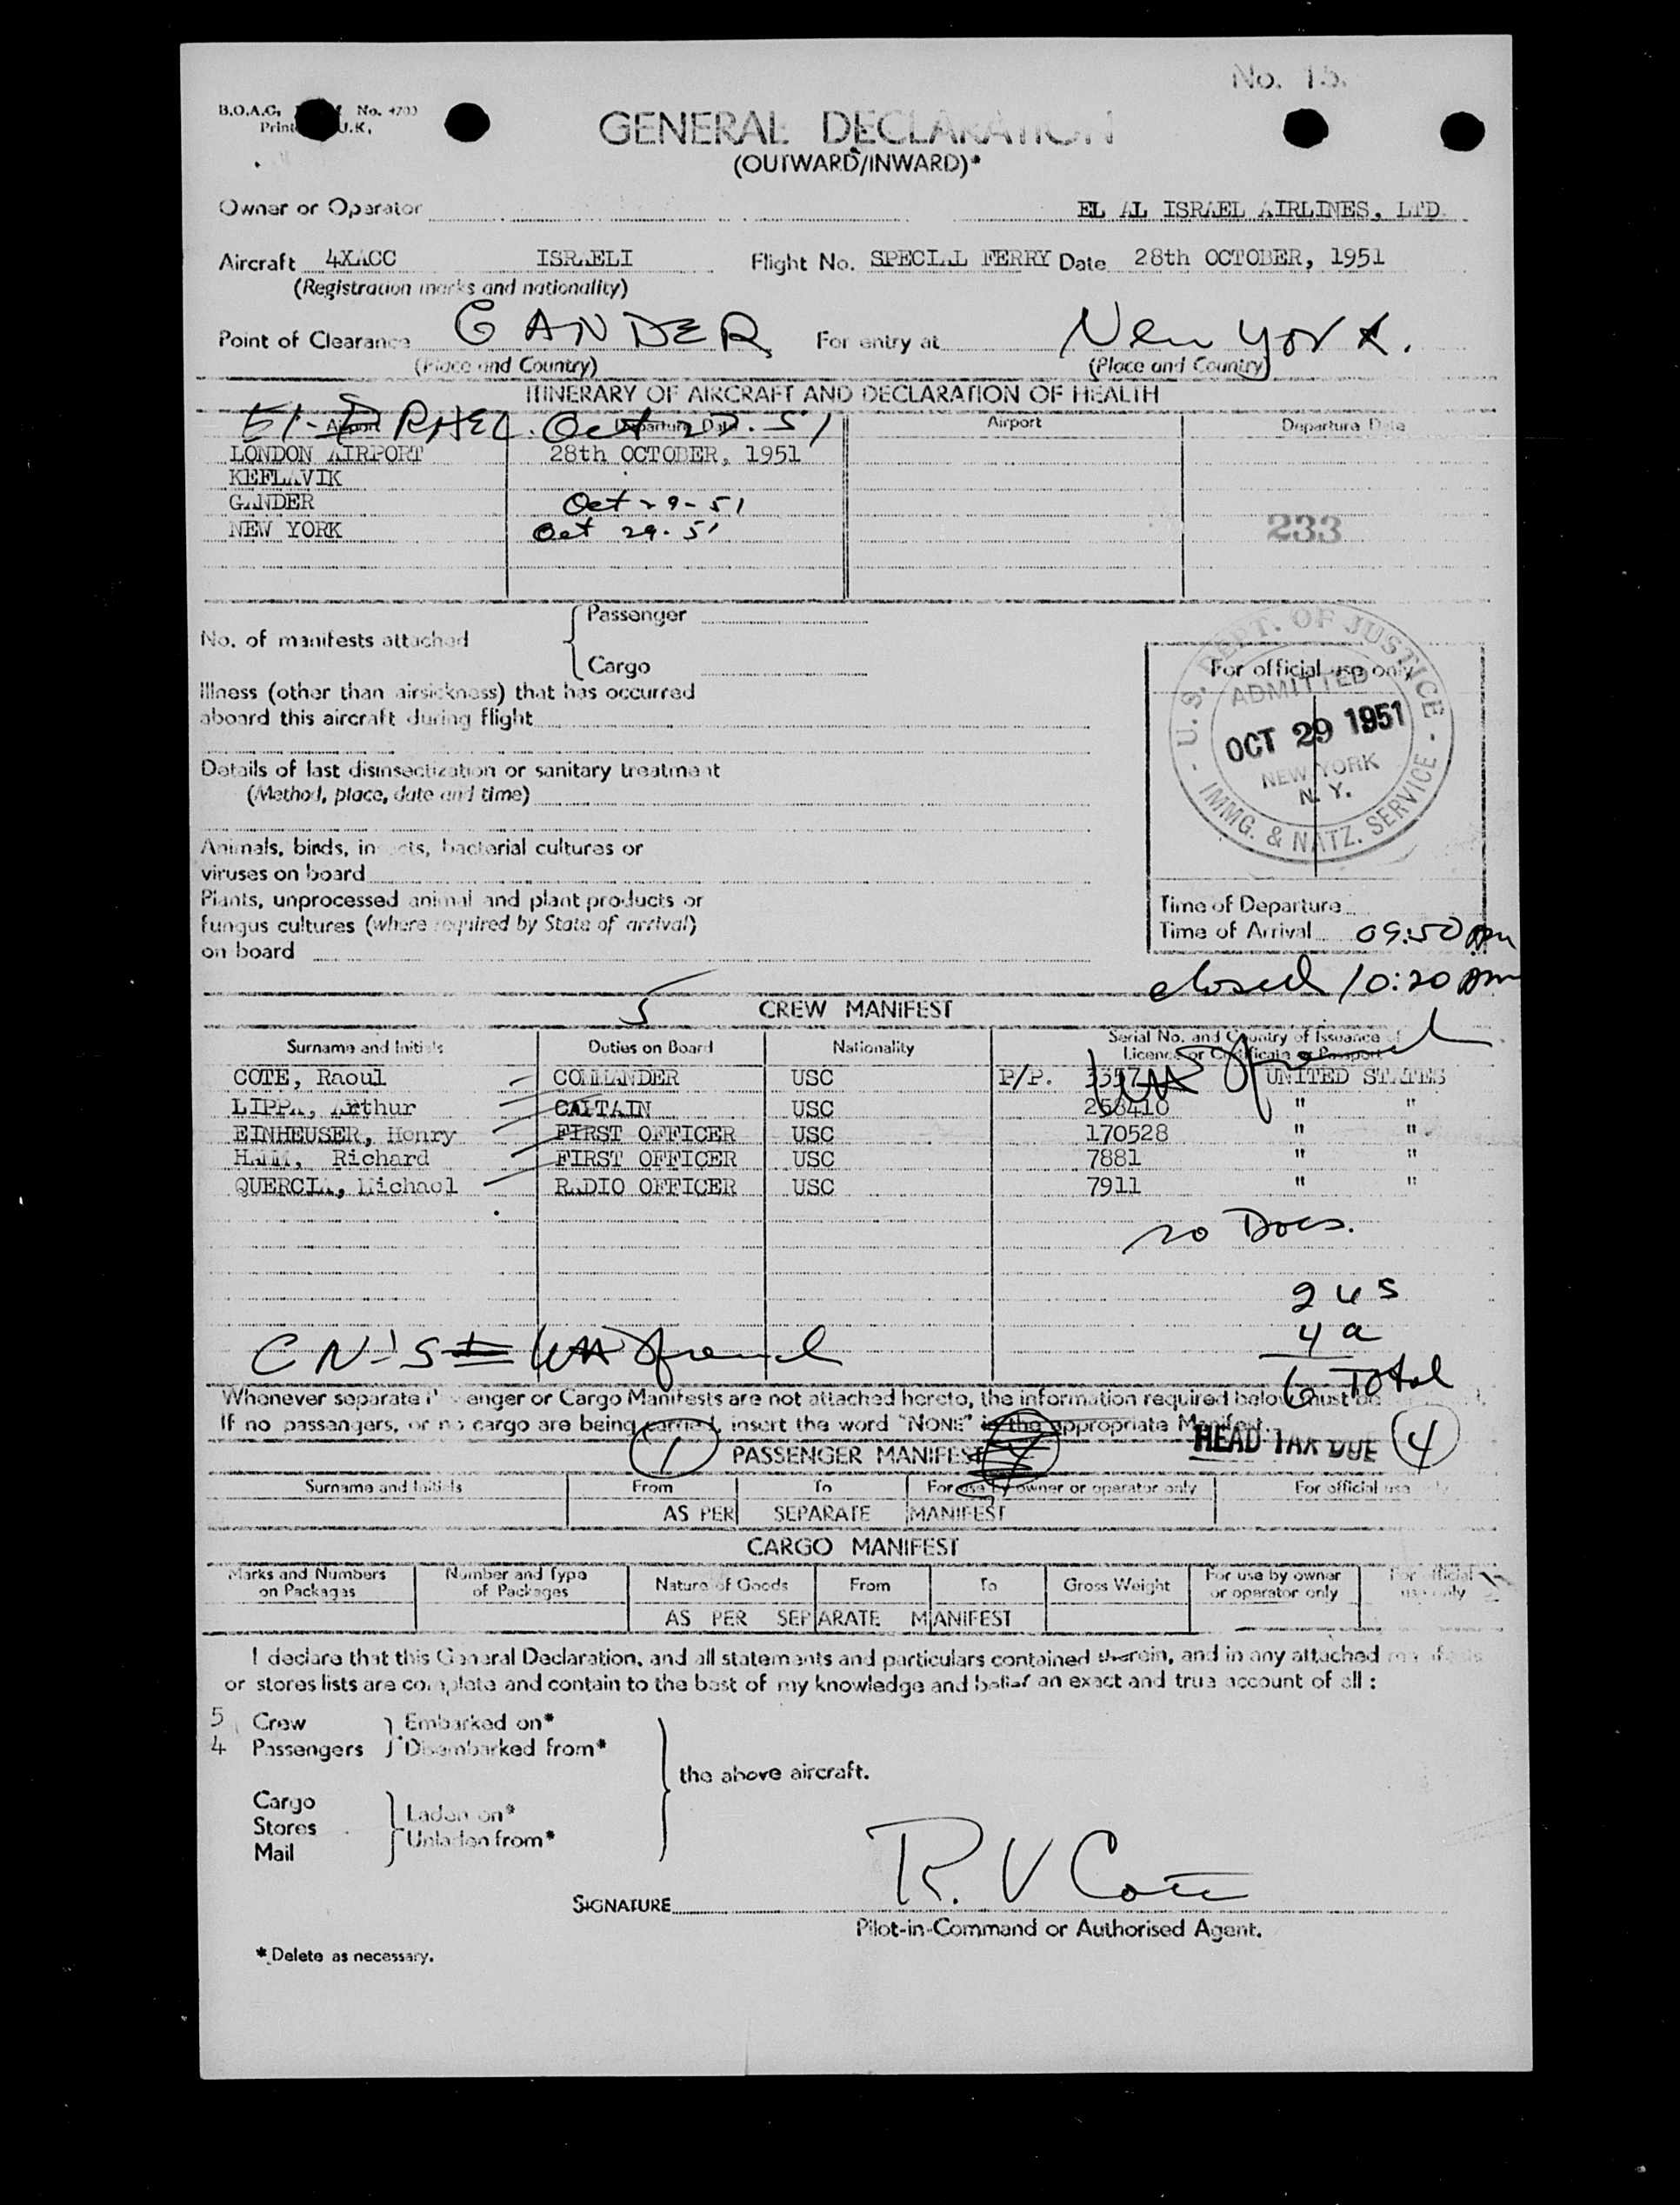 No. 15.
B.O.A.C. No. 4703
U.K.
GENERAL DECLARATION
(OUTWARD/INWARD)*
Owner or Operator EL AL ISRAEL AIRLINES, LTD.
Aircraft 4XACC ISRAELI Flight No. SPECIAL FERRY Date 28th OCTOBER, 1951
(Registration marks and nationality)
Point of Clearance GANDER For entry at New York.
(Place and Country) (Place and Country)
ITINERARY OF AIRCRAFT AND DECLARATION OF HEALTH
Airport Departure Date Airport Departure Date
Oct 51
LONDON AIRPORT 28th OCTOBER, 1951
KEFLAVIK
GANDER Oct 29-51
NEW YORK Oct 29.51
233
Passenger
No. of manifests attached
Cargo
Illness (other than airsickness) that has occurred
aboard this aircraft during flight
Details of last disinsectization or sanitary treatment
(Method, place, date and time)
Animals, birds, insects, bacterial cultures or
viruses on board
Plants, unprocessed animal and plant products or
fungus cultures (where required by State of arrival)
on board
For official use only
U.S. DEPT. OF JUSTICE
ADMITTED
OCT 29 1951
NEW YORK
N. Y.
IMMG. & NATZ. SERVICE
Time of Departure
Time of Arrival 09:50 pm
closed 10:20 pm
5
CREW MANIFEST
Surname and Initials Duties on Board Nationality Serial No. and Country of Issuance of
Licence or Certificate or Passport
COTE, Raoul COMMANDER USC P/P. UNITED STATES
LIPPA, Arthur CAPTAIN USC 258410 " "
EINHEUSER, Henry FIRST OFFICER USC 170528 " "
HAMM, Richard FIRST OFFICER USC 7881 " "
QUERCIA, Michael RADIO OFFICER USC 7911 " "
no Docs.
2 US
4 a
6 Total
Whenever separate Passenger or Cargo Manifests are not attached hereto, the information required below must be
If no passengers, or no cargo are being carried, insert the word "NONE" in the appropriate Manifest.
1 PASSENGER MANIFEST HEAD TAX DUE 4
Surname and Initials From To For use by owner or operator only For official use only
AS PER SEPARATE MANIFEST
CARGO MANIFEST
Marks and Numbers on Packages Number and Type of Packages Nature of Goods From To Gross Weight For use by owner or operator only For official use only
AS PER SEPARATE MANIFEST
I declare that this General Declaration, and all statements and particulars contained therein, and in any attached manifests
or stores lists are complete and contain to the best of my knowledge and belief an exact and true account of all :
5 Crew Embarked on*
4 Passengers Disembarked from*
the above aircraft.
Cargo
Stores Laden on*
Mail Unladen from*
SIGNATURE R. V Cote
Pilot-in-Command or Authorised Agent.
* Delete as necessary.